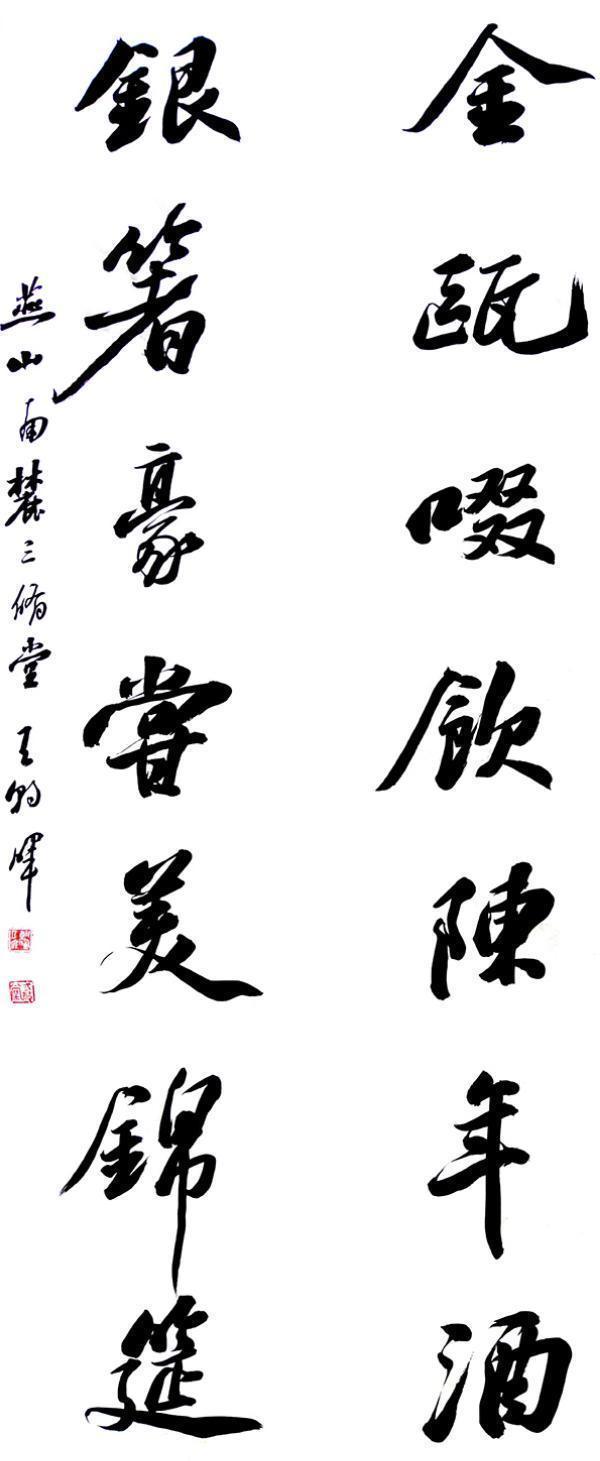 金瓯啜飲陳年酒
銀箸豪嘗美錦筵
燕山南麓三脩堂 王朝暉